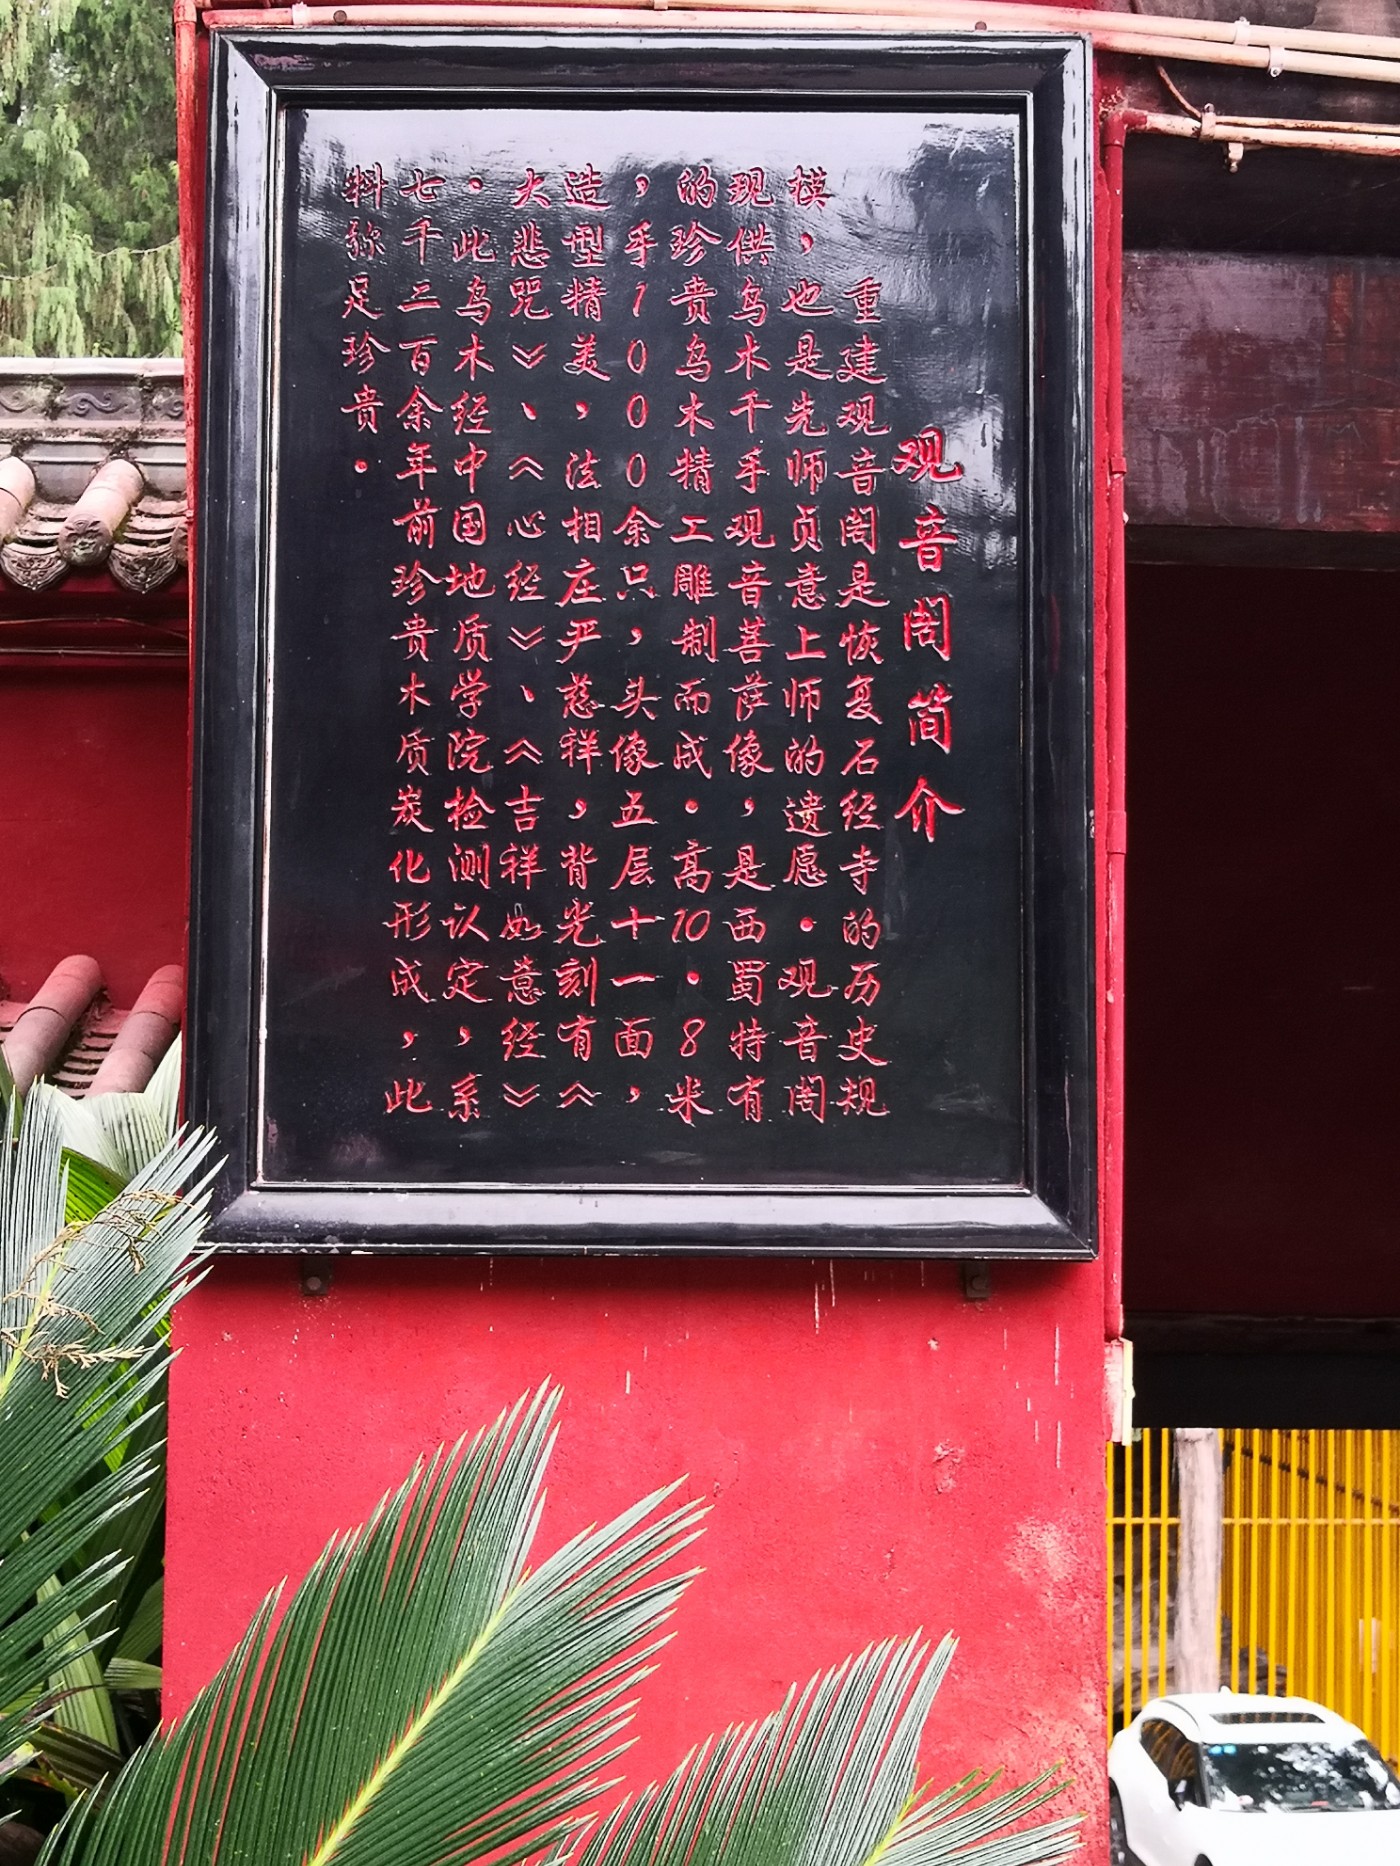 观音阁简介
重建观音阁是恢复石经寺的历史规
模，也是先师贞意上师的遗愿。观音阁
现供乌木千手观音菩萨像，是西蜀特有
的珍贵乌木精工雕制而成。高10.8米
，手1000余只，头像五层十一面，
造型精美，法相庄严慈祥，背光刻有《
大悲咒》、《心经》、《吉祥如意经》
。此乌木经中国地质学院检测认定，系
七千二百余年前珍贵木质炭化形成，此
料弥足珍贵。